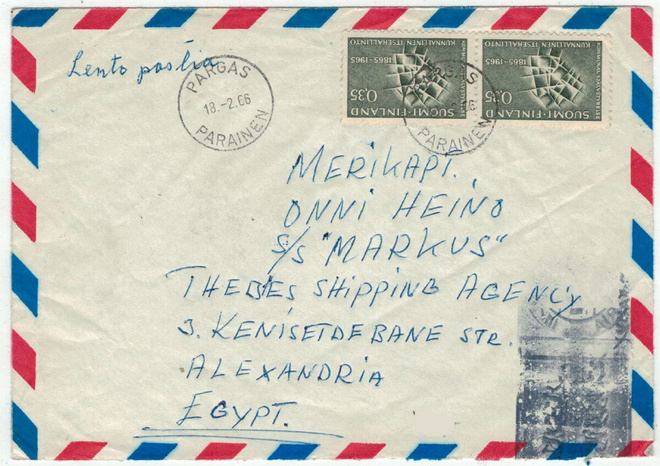 Lento postia
PARGAS
18.-2.66
PARAINEN
KUNNALLINEN ITSEHALLINTO
1865-1965
0,35
SUOMI-FINLAND
KUNNALLINEN ITSEHALLINTO
1865-1965
0,35
SUOMI-FINLAND
PARAINEN
MERIKAPT.
ONNI HEINO
S/S "MARKUS"
THEBES SHIPPING AGENCY
3. KENISETDEBANE STR.
ALEXANDRIA
EGYPT.